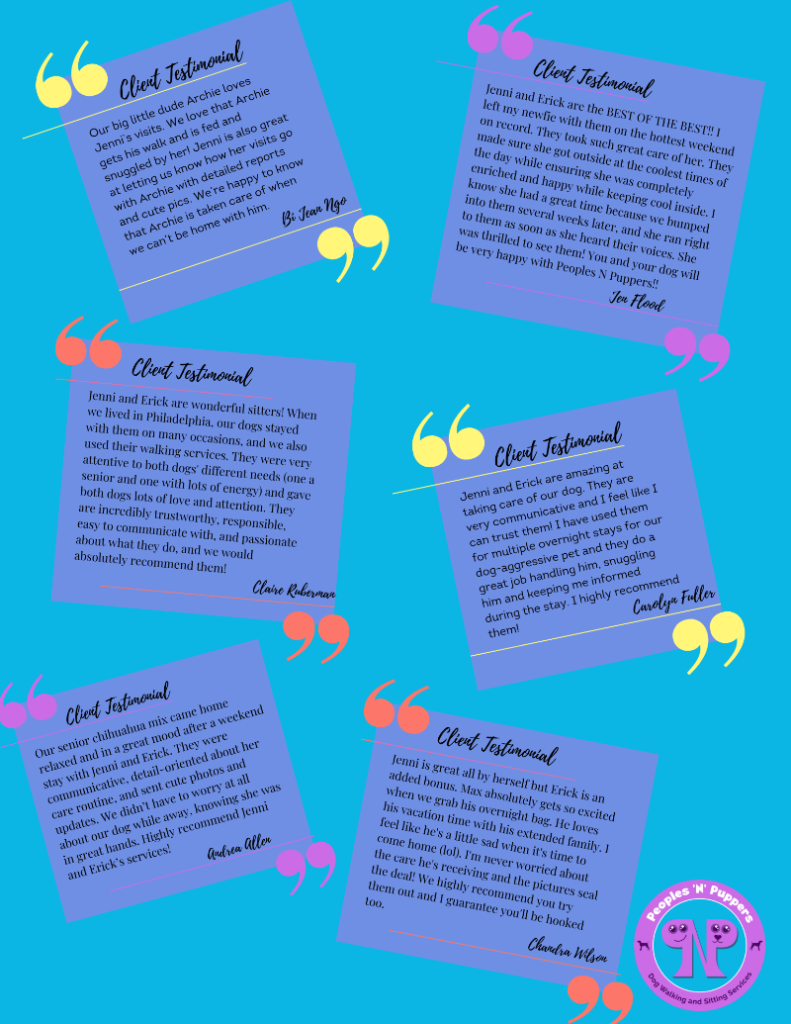 Client Testimonial
Our big little dude Archie loves
Jenni's visits. We love that Archie
gets his walk and is fed and
snuggled by her! Jenni is also great
at letting us know how her visits go
with Archie with detailed reports
and cute pics. We're happy to know
that Archie is taken care of when
we can't be home with him.
Bi Jean Ngo
Client Testimonial
Jenni and Erick are the BEST OF THE BEST!! I
left my newfie with them on the hottest weekend
on record. They took such great care of her. They
made sure she got outside at the coolest times of
the day while ensuring she was completely
enriched and happy while keeping cool inside. I
know she had a great time because we bumped
into them several weeks later, and she ran right
to them as soon as she heard their voices. She
was thrilled to see them! You and your dog will
be very happy with Peoples N Puppers!!
Jen Flood
Client Testimonial
Jenni and Erick are wonderful sitters! When
we lived in Philadelphia, our dogs stayed
with them on many occasions, and we also
used their walking services. They were very
attentive to both dogs' different needs (one a
senior and one with lots of energy) and gave
both dogs lots of love and attention. They
are incredibly trustworthy, responsible,
easy to communicate with, and passionate
about what they do, and we would
absolutely recommend them!
Claire Ruberman
Client Testimonial
Jenni and Erick are amazing at
taking care of our dog. They are
very communicative and I feel like I
can trust them! I have used them
for multiple overnight stays for our
dog-aggressive pet and they do a
great job handling him, snuggling
him and keeping me informed
during the stay. I highly recommend
them!
Carolyn Fuller
Client Testimonial
Our senior chihuahua mix came home
relaxed and in a great mood after a weekend
stay with Jenni and Erick. They were
communicative, detail-oriented about her
care routine, and sent cute photos and
updates. We didn't have to worry at all
about our dog while away, knowing she was
in great hands. Highly recommend Jenni
and Erick's services!
Andrea Allen
Client Testimonial
Jenni is great all by herself but Erick is an
added bonus. Max absolutely gets so excited
when we grab his overnight bag. He loves
his vacation time with his extended family. I
feel like he's a little sad when it's time to
come home (lol). I'm never worried about
the care he's receiving and the pictures seal
the deal! We highly recommend you try
them out and I guarantee you'll be hooked
too.
Chandra Wilson
Peoples 'N' Puppers
PNP
Dog Walking and Sitting Services